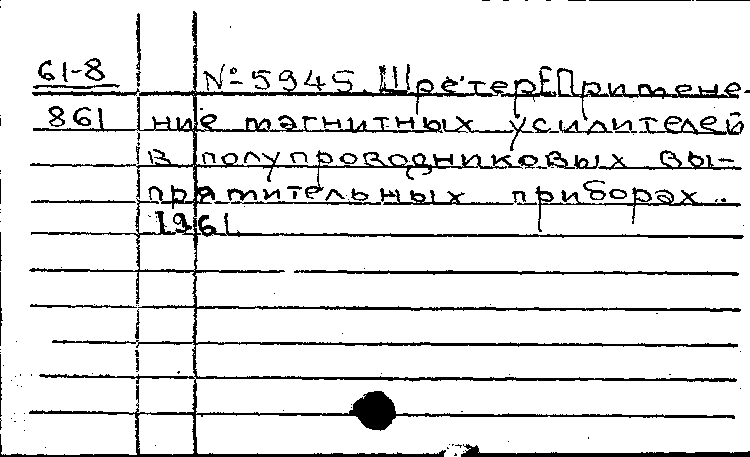 61-8
№ 5945. Шретер Е Примене-
861 ние магнитных усилителей
в полупроводниковых вы-
прямительных приборах.
1961.